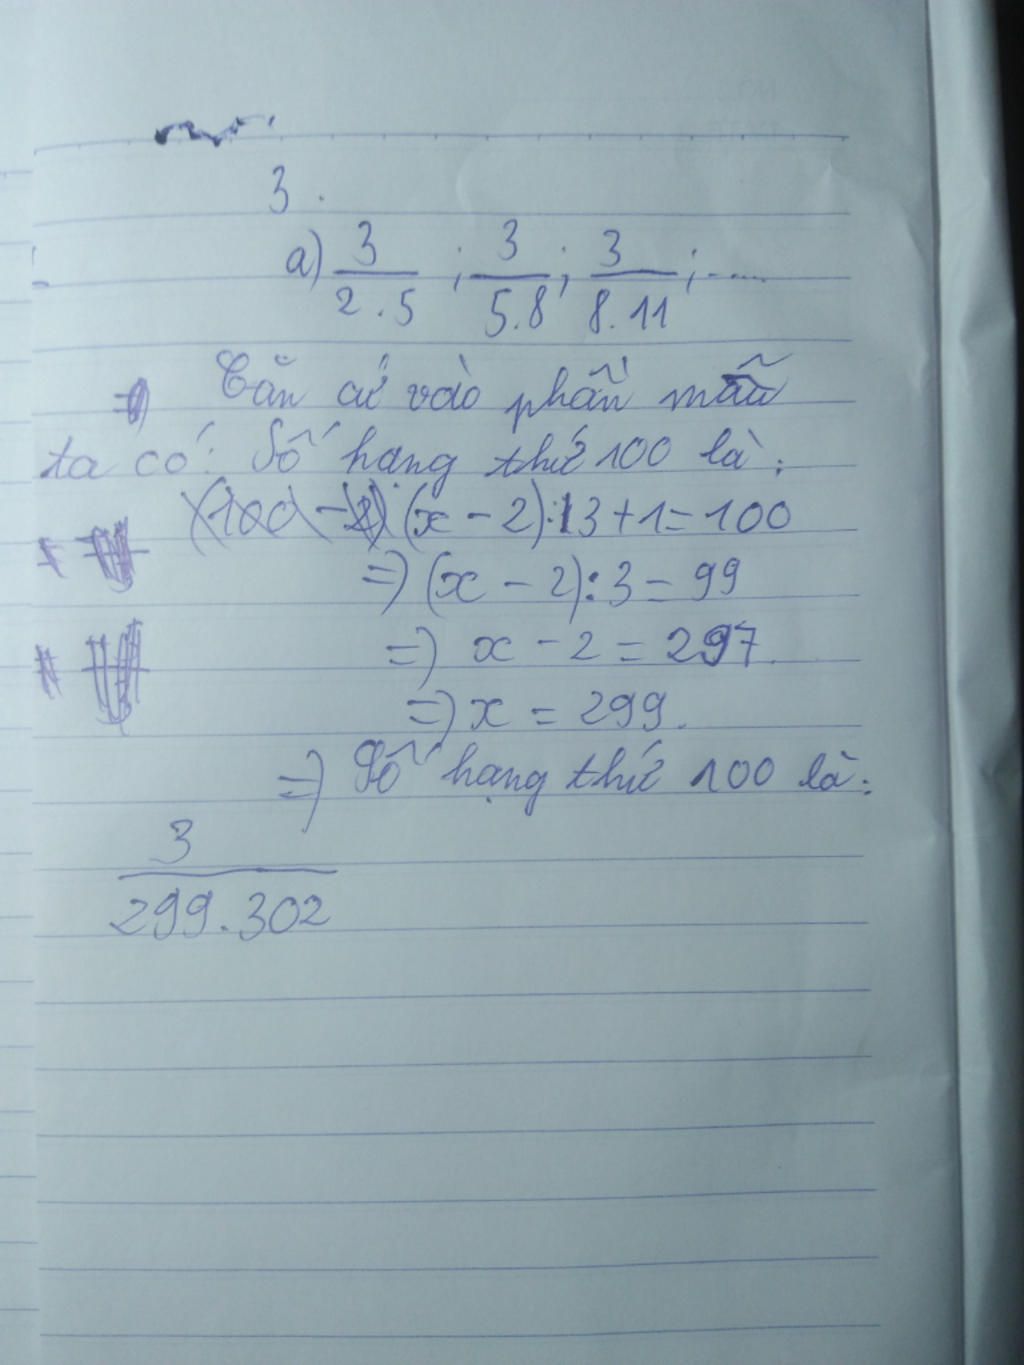 3.
a) 3/2.5 ; 3/5.8 ; 3/8.11 ; .....
Căn cứ vào phần mẫu
ta có: Số hạng thứ 100 là:
(x - 2):3 + 1 = 100
=> (x - 2):3 = 99
=> x - 2 = 297.
=> x = 299.
=> Số hạng thứ 100 là:
3/299.302